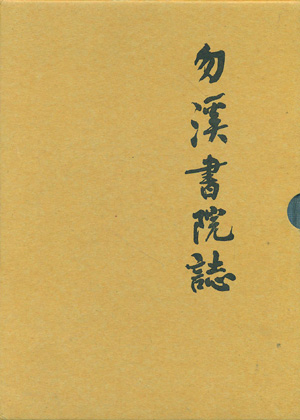 勿溪書院誌